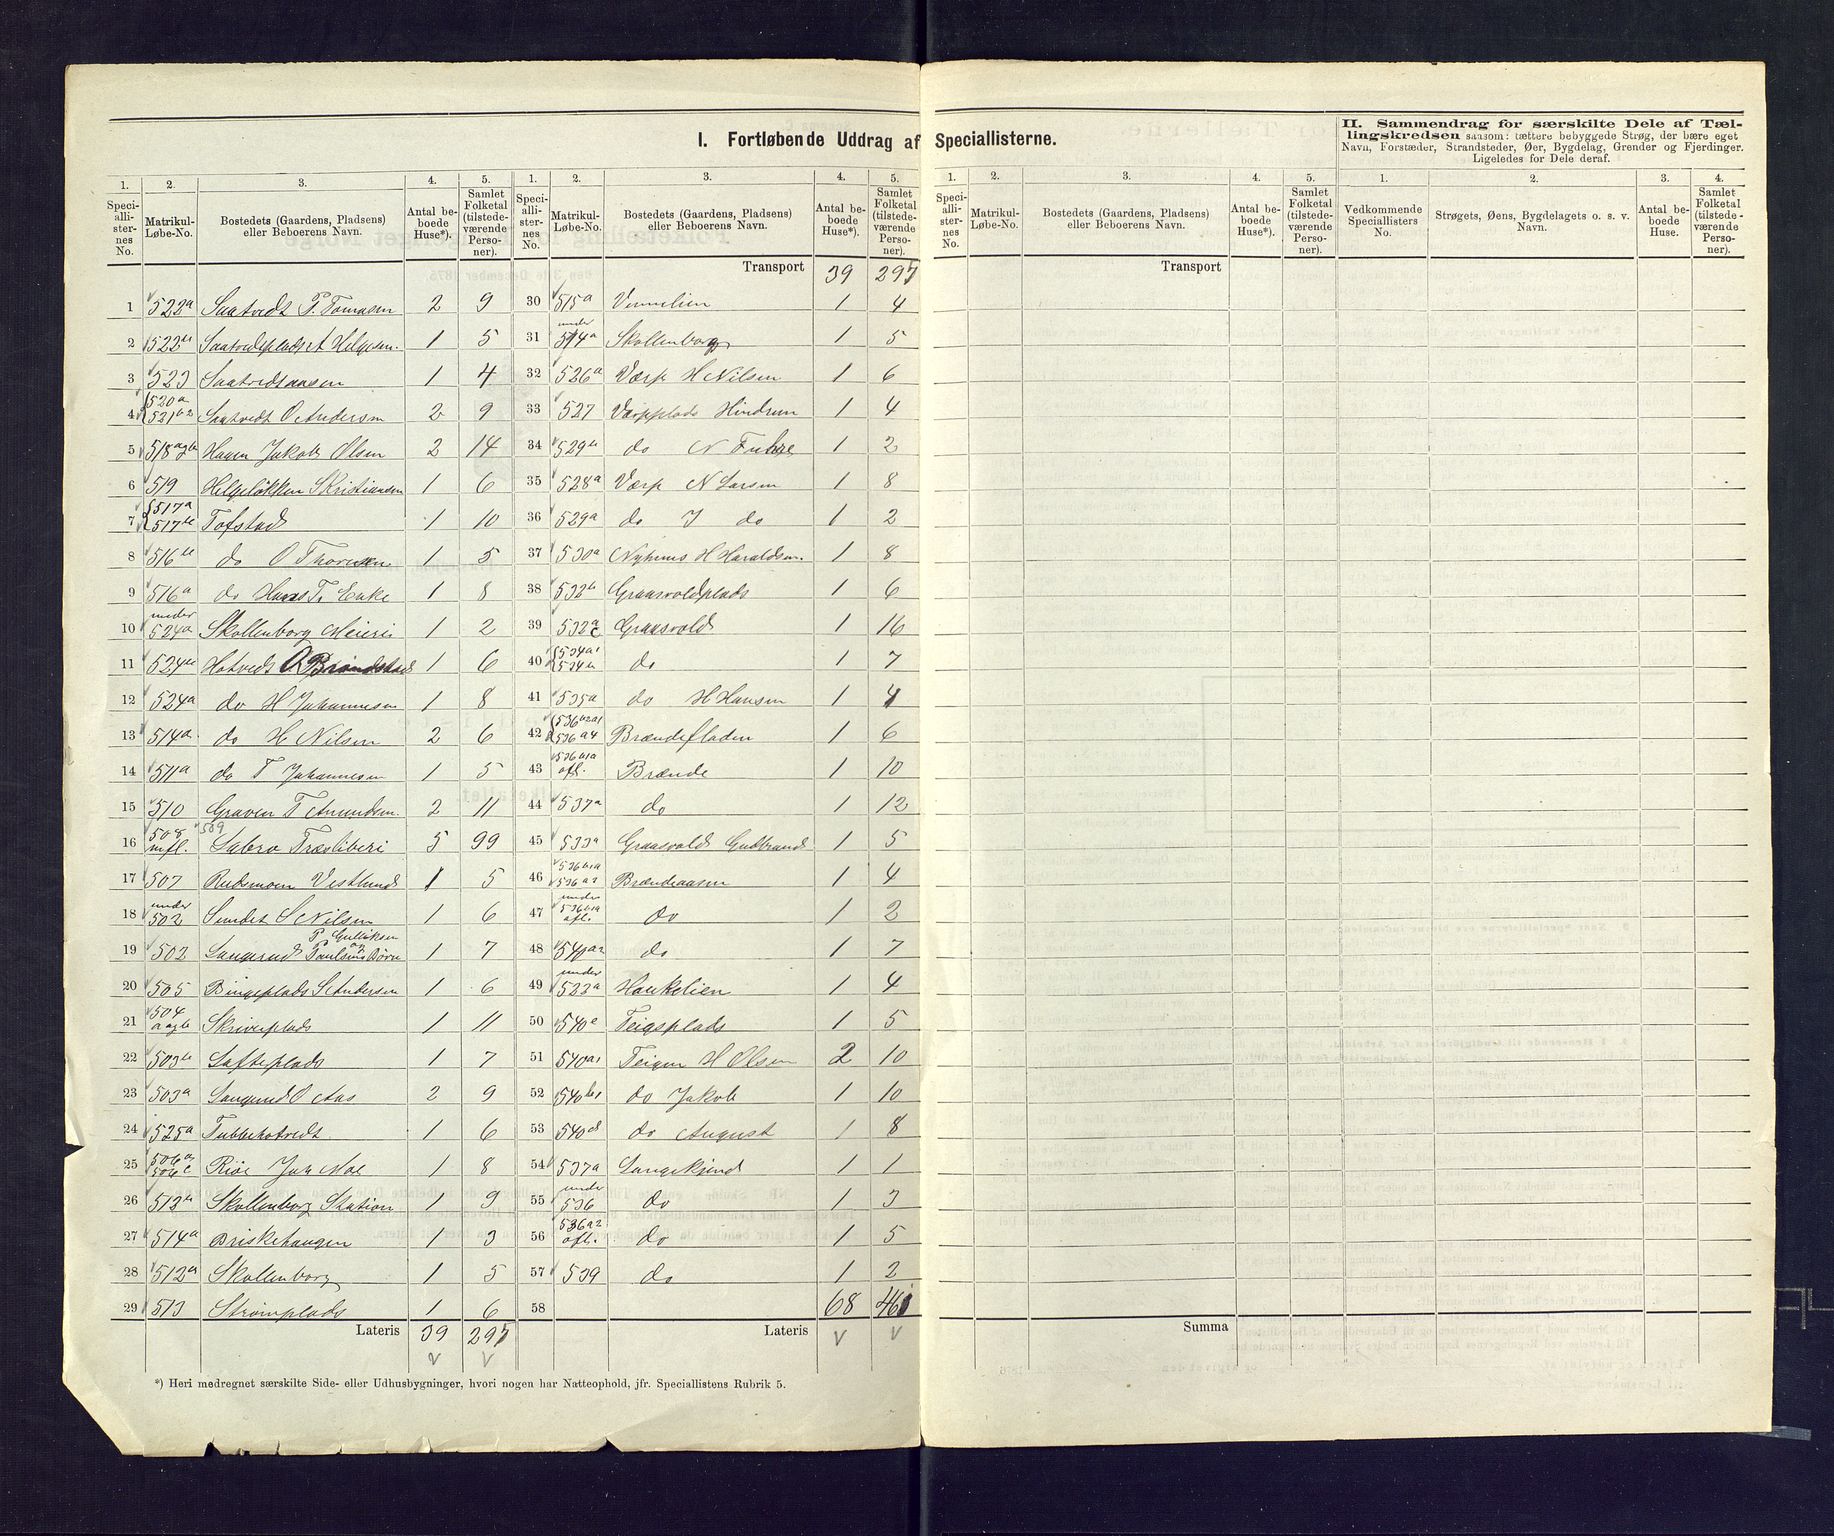 I. Fortløbende Uddrag af Speciallisterne.
II. Sammendrag for særskilte Dele af Tæl-
lingskredsen saasom: tættere bebyggede Strøg, der bære eget
Navn, Forstæder, Strandsteder, Øer, Bygdelag, Grender og Fjerdinger.
Ligeledes for Dele deraf.
1. 2. 3. 4. 5. 1. 2. 3. 4. 5. 1. 2. 3. 4. 5. 1. 2. 3. 4.
Speci-allister-nes No. Matrikul-Løbe-No. Bostedets (Gaardens, Pladsens) eller Beboerens Navn. Antal be-boede Huse*). Samlet Folketal (tilstede-værende Perso-ner).
Speci-allister-nes No. Matrikul-Løbe-No. Bostedets (Gaardens, Pladsens) eller Beboerens Navn. Antal be-boede Huse*). Samlet Folketal (tilstede-værende Perso-ner).
Speci-allister-nes No. Matrikul-Løbe-No. Bostedets (Gaardens, Pladsens) eller Beboerens Navn. Antal be-boede Huse*). Samlet Folketal (tilstede-værende Perso-ner).
Vedkommende Speciallisters No. Strøgets, Øens, Bygdelagets o. s. v. Navn. Antal be-boede Huse. Samlet Folketal (tilstede-værende Perso-ner).
1 522a Saatvedt P. Tomasen 2 9
2 522b Saatvedtplads A Helgesen. 1 5
3 523 Saatvedtaasen 1 4
4 520a 521b2 Saatvedt O Andersen 2 9
5 518a&b Hagen Jakob Olsen 2 14
6 519 Helgeløkken S Kristiansen 1 6
7 517a 517b Tofstad 1 10
8 516b do O Thoresen 1 5
9 516a do Hans T. Enke 1 8
10 under 524a Skollenborg Meieri 1 2
11 524b Hotvedt O Brandstad 1 6
12 524a do H Johannesen 1 8
13 514a do H Nilsen 2 6
14 511a do T Johannesen 1 5
15 510 Graven T Amundsen 2 11
16 508 mfl. 509 Labro Træsliberi 5 99
17 507 Rudsmoen Vestlund 1 5
18 under 502 Sundet S Nilsen 1 6
19 502 Langerud P Gulliksen og Paulsens Børn 1 7
20 505 Bingeplads S Andersen 1 6
21 504 a og b Skriverplads 1 11
22 503b Lofteplads 1 7
23 503a Langerud O Aas 2 9
24 525a Tubbehotvedt 1 6
25 506a 506c Rise Joh Moe 1 8
26 513b Skollenborg Station 1 9
27 514a Briskehaugen 1 3
28 512a Skollenborg 1 5
29 513 Strømplads 1 6
Lateris 39 295
Transport 39 295
30 515a Vennelien 1 4
31 under 514a Skollenborg 1 5
32 526a Værp H Nilsen 1 6
33 527 Værpplads Hindrum 1 4
34 529b do N Fuhre 1 2
35 528a Værp N Larsen 1 8
36 529a do J do 1 2
37 530a Nyhuus H Haraldsen. 1 8
38 532b Graasvoldplads 1 6
39 532a c Graasvold 1 16
40 534a1 534b do 1 7
41 535a do H Hansen 1 4
42 536a2a1 536a4 Brændefladen 1 6
43 536b1a ofl. Brænde 1 10
44 537a do 1 12
45 533a Graasvold Gudbrand 1 5
46 536b1a 536a2 Brændeaasen 1 4
47 under 536b1a ofl. do 1 2
48 540a2 do 1 7
49 under 522a Haukelien 1 4
50 540a Teigsplads 1 5
51 540a1 Teigen H Olsen 2 10
52 540b1 do Jakob 1 10
53 540d do August 1 8
54 537a Langekjend 1 1
55 under 536 do 1 3
56 536a2 ofl. do 1 5
57 539 do 1 2
58 68 461
Lateris
Transport
Summa
*) Heri medregnet særskilte Side- eller Udhusbygninger, hvori nogen har Natteophold, jfr. Speciallistens Rubrik 5.